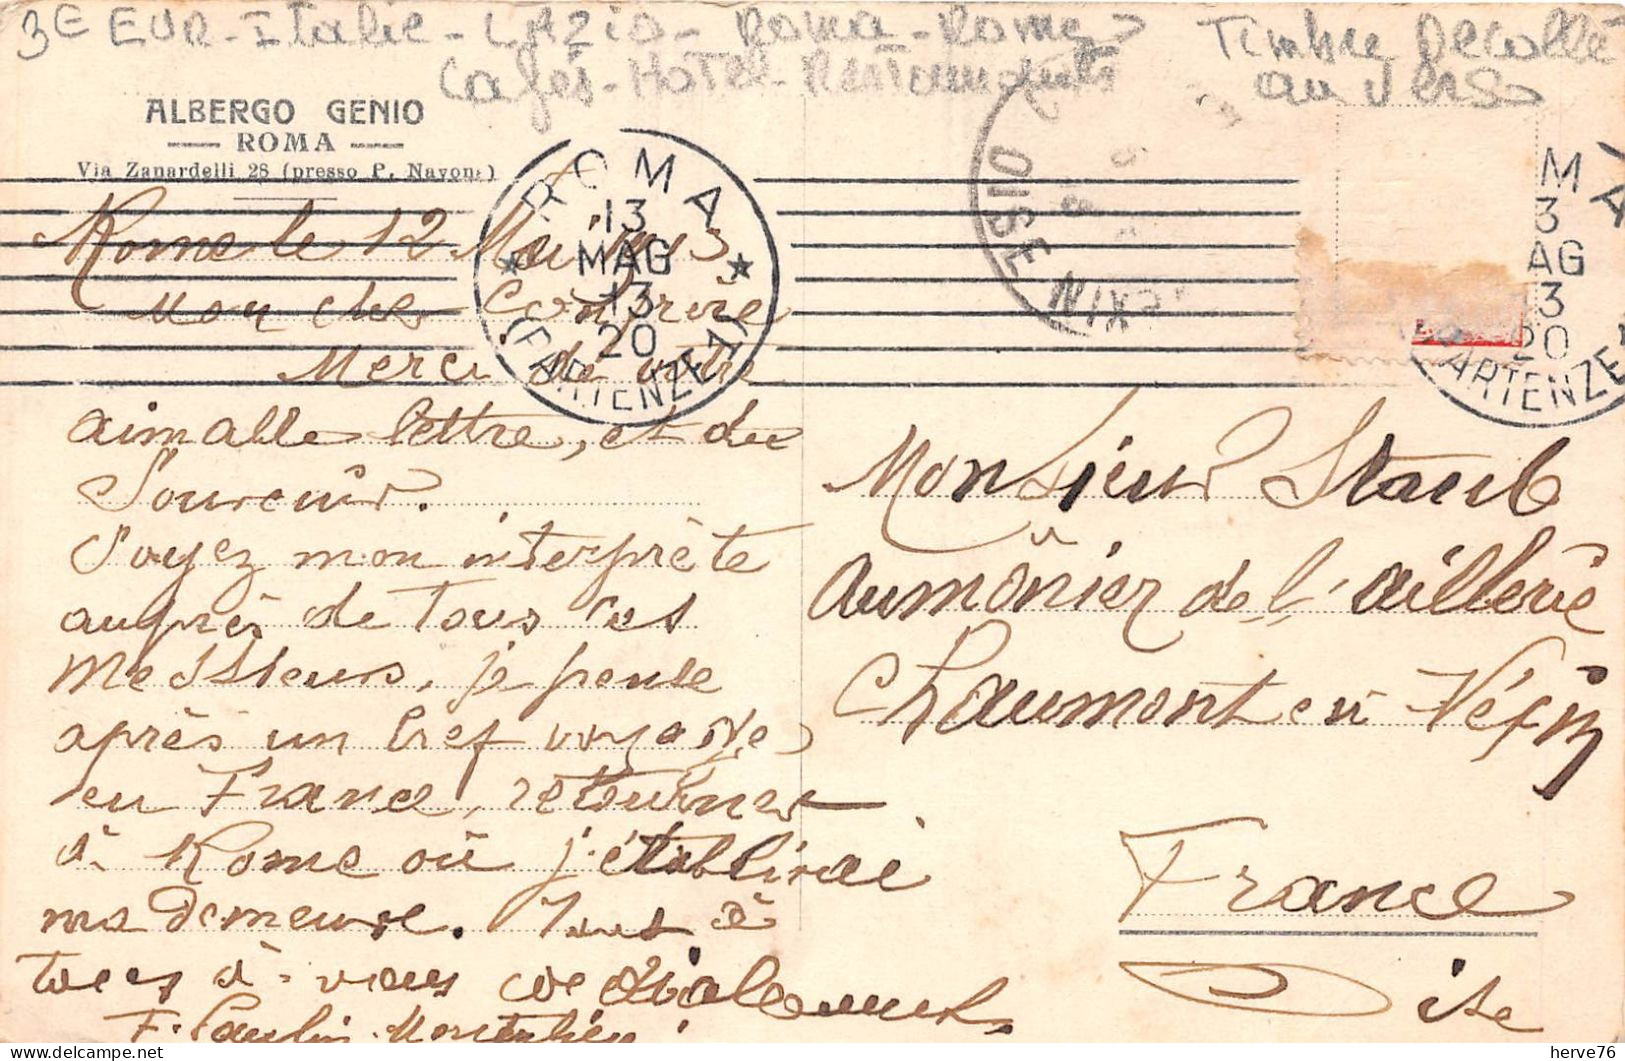 3E EUR-Italie-LAZIO-Roma-Rome
Cafés-Hotel-Restaurants
Timbre Décollé
au verso
ALBERGO GENIO
ROMA
Via Zanardelli 28 (presso P. Navona)
ROMA
13
MAG
13
20
(FA PARTENZE 1)
OISE
EXIN
M
3
AG
3
20
ARTENZE
Rome le 12 Mai 1913
Mon cher Confrère
Merci de votre
aimable lettre, et du
Souvenir.
Soyez mon interprète
auprès de tous ces
Messieurs, je pense
après un bref voyage
en France, retourner
à Rome où j'établirai
ma demeure. Tout à
tous à vous cordialement.
F. Paulin
Monsieur Staub
Aumônier de l'aillerie
Chaumont en Véxin
France
Oise
herve76